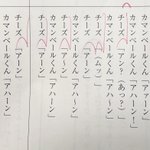 カマンベールくん「アハーン！」
チーズ「アン？（あっ？）」
カマンベールくん「アハーン！」
チーズ
カマンベールくん「アハ〜ン」
チーズ「ア〜ン」
カマンベールくん「アハーン」
チーズ「アーン」
カマンベールくん「アハーン」